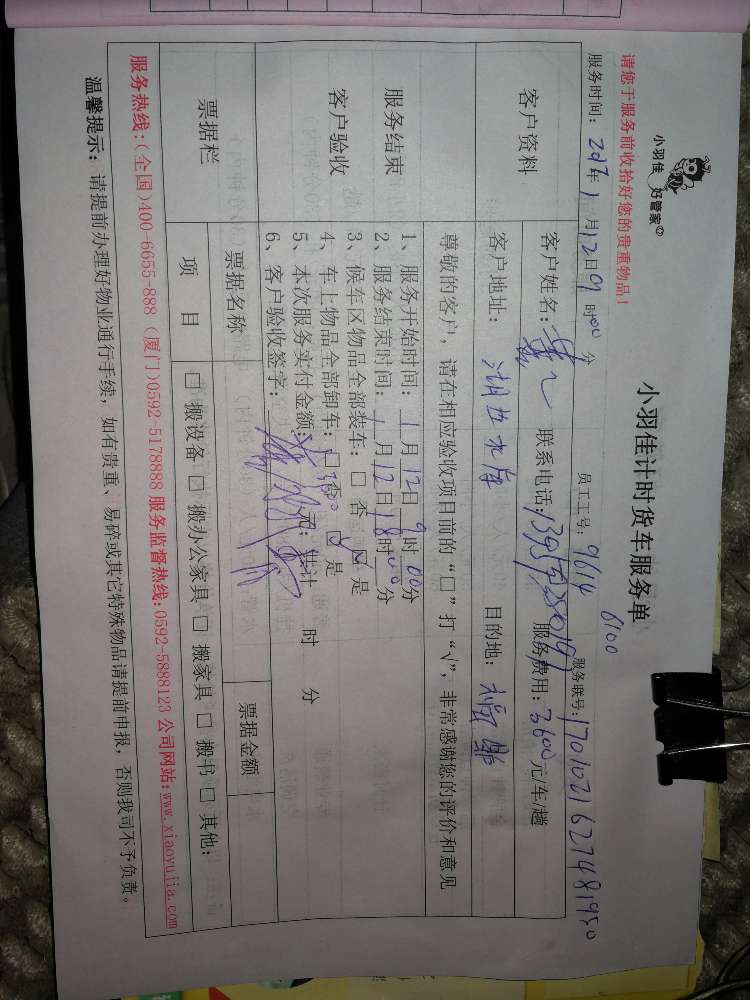 小羽佳 好管家
小羽佳计时货车服务单
6100
请您于服务前收拾好您的贵重物品!
员工工号: 9614
服务联号: 17010216227481950
服务时间: 2017年1月12日9时00分
客户资料
客户姓名: 联系电话: 服务费用: 3600元/车/趟
客户地址: 目的地:
尊敬的客户, 请在相应验收项目前的“□”打“√”, 非常感谢您的评价和意见
服务结束
客户验收
1、服务开始时间: 1月12日9时00分
2、服务结束时间: 1月12日18时00分
3、候车区物品全部装车: □ 否 ☑ 是
4、车上物品全部卸车: □ 否 ☑ 是
5、本次服务实付金额: 3600元; 共计 时 分
6、客户验收签字:
票据栏
票据名称 票据金额
项 目 □ 搬设备 □ 搬办公家具 □ 搬家具 □ 搬书 □ 其他:
服务热线:(全国)400-6655-888 (厦门)0592-5178888 服务监督热线:0592-5888123 公司网站:www.xiaoyujia.com
温馨提示: 请提前办理好物业通行手续, 如有贵重、易碎或其它特殊物品请提前申报, 否则我司不予负责。